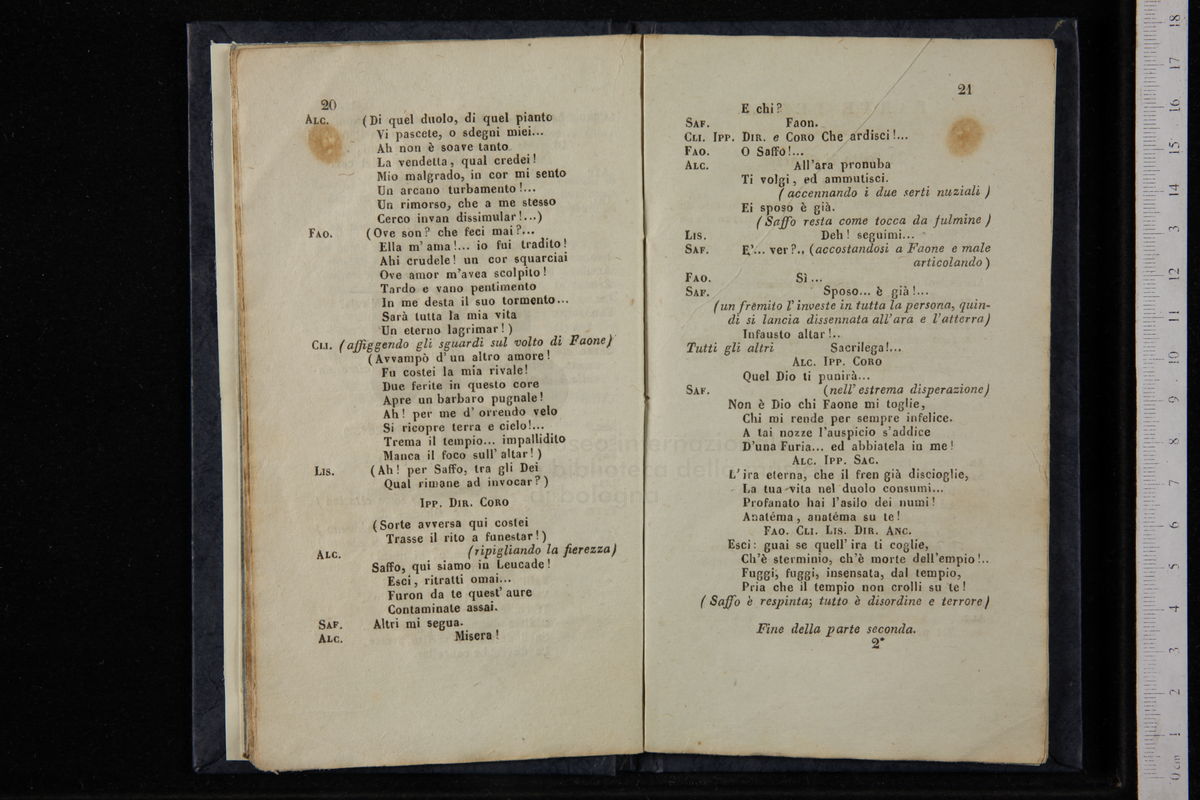 20
ALC. (Di quel duolo, di quel pianto
Vi pascete, o sdegni miei...
Ah non è soave tanto
La vendetta, qual credei!
Mio malgrado, in cor mi sento
Un arcano turbamento!...
Un rimorso, che a me stesso
Cerco invan dissimular!...)
FAO. (Ove son? che feci mai?...
Ella m'ama!... io fui tradito!
Ahi crudele! un cor squarciai
Ove amor m'avea scolpito!
Tardo e vano pentimento
In me desta il suo tormento...
Sarà tutta la mia vita
Un eterno lagrimar!)
CLI. (affiggendo gli sguardi sul volto di Faone)
(Avvampò d'un altro amore!
Fu costei la mia rivale!
Due ferite in questo core
Apre un barbaro pugnale!
Ah! per me d'orrendo velo
Si ricopre terra e cielo!...
Trema il tempio... impallidito
Manca il foco sull'altar!)
LIS. (Ah! per Saffo, tra gli Dei
Qual rimane ad invocar?)
IPP. DIR. CORO
(Sorte avversa qui costei
Trasse il rito a funestar!)
ALC. (ripigliando la fierezza)
Saffo, qui siamo in Leucade!
Esci, ritratti omai...
Furon da te quest'aure
Contaminate assai.
SAF. Altri mi segua.
ALC. Misera!
21
E chi?
SAF. Faon.
CLI. IPP. DIR. e CORO Che ardisci!...
FAO. O Saffo!...
ALC. All'ara pronuba
Ti volgi, ed ammutisci.
(accennando i due serti nuziali)
Ei sposo è già.
(Saffo resta come tocca da fulmine)
LIS. Deh! seguimi...
SAF. E'... ver?.. (accostandosi a Faone e male
articolando)
FAO. Sì...
SAF. Sposo... è già!...
(un frèmito l'investe in tutta la persona, quin-
di si lancia dissennata all'ara e l'atterra)
Infausto altar!..
Tutti gli altri Sacrilega!...
ALC. IPP. CORO
Quel Dio ti punirà...
SAF. (nell'estrema disperazione)
Non è Dio chi Faone mi toglie,
Chi mi rende per sempre infelice.
A tai nozze l'auspicio s'addice
D'una Furia... ed abbiatela in me!
ALC. IPP. SAC.
L'ira eterna, che il fren già discioglie,
La tua vita nel duolo consumi...
Profanato hai l'asilo dei numi!
Anatéma, anatéma su te!
FAO. CLI. LIS. DIR. ANC.
Esci: guai se quell'ira ti coglie,
Ch'è sterminio, ch'è morte dell'empio!..
Fuggi, fuggi, insensata, dal tempio,
Pria che il tempio non crolli su te!
(Saffo è respinta; tutto è disordine e terrore)
Fine della parte seconda.
2*
museo internazionale
biblioteca della
di bologna
0 cm 1 2 3 4 5 6 7 8 9 10 11 12 13 14 15 16 17 18